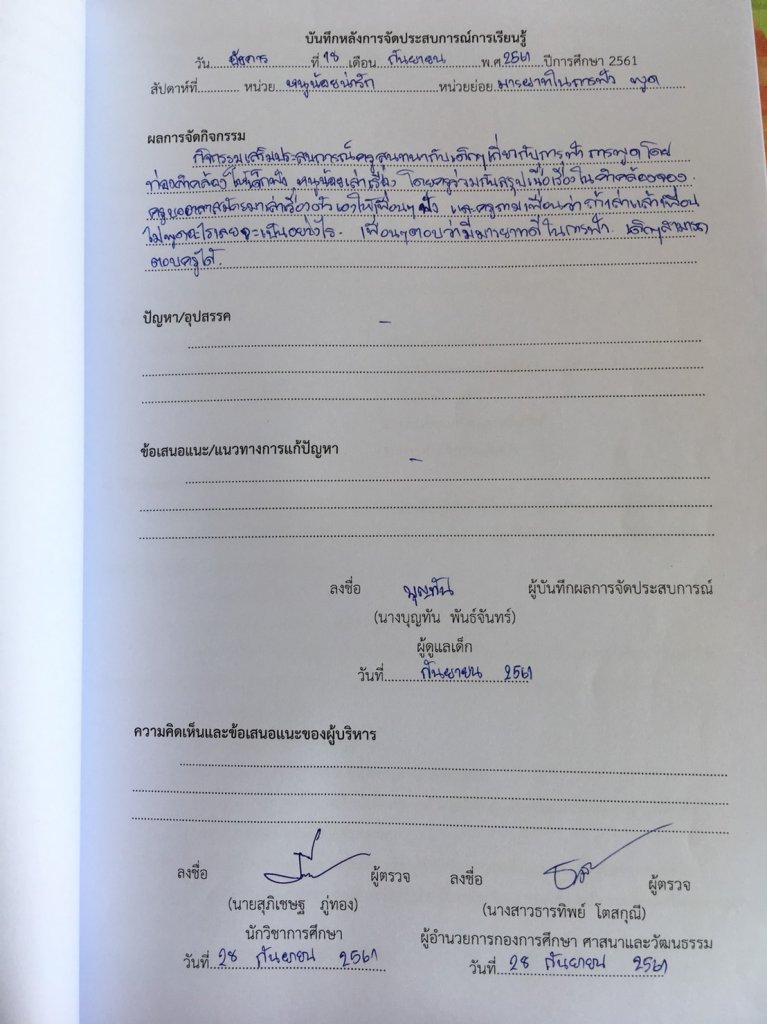 บันทึกหลังการจัดประสบการณ์การเรียนรู้
วัน อังคาร ที่ 18 เดือน กันยายน พ.ศ. 2561 ปีการศึกษา 2561
สัปดาห์ที่............ หน่วย หนูน้อยน่ารัก หน่วยย่อย มารยาทในการฟัง พูด
ผลการจัดกิจกรรม
กิจกรรมเสริมประสบการณ์ครูสนทนากับเด็กๆเกี่ยวกับการฟัง การพูด โดย
ท่องคำคล้องให้เด็กฟัง หนูน้อยเล่าเรื่อง โดยครูร่วมกันสรุปเนื้อเรื่องในคำคล้องจอง
ครูขออาสาสมัครมาเล่าเรื่องให้เพื่อนๆ ฟัง และครูถามเพื่อนว่า ถ้าเล่าแล้วเพื่อน
ไม่พูดอะไรเลยจะเป็นอย่างไร. เพื่อนๆตอบว่ามีมารยาทดีในการฟัง. เด็กๆสามารถ
ตอบครูได้.
ปัญหา/อุปสรรค
–
ข้อเสนอแนะ/แนวทางการแก้ปัญหา
–
ลงชื่อ บุญทัน ผู้บันทึกผลการจัดประสบการณ์
(นางบุญทัน พันธ์จันทร์)
ผู้ดูแลเด็ก
วันที่ กันยายน 2561
ความคิดเห็นและข้อเสนอแนะของผู้บริหาร
ลงชื่อ ผู้ตรวจ ลงชื่อ ผู้ตรวจ
(นายสุภิเชษฐ ภู่ทอง) (นางสาวธารทิพย์ โตสกุณี)
นักวิชาการศึกษา ผู้อำนวยการกองการศึกษา ศาสนาและวัฒนธรรม
วันที่ 28 กันยายน 2561 วันที่ 28 กันยายน 2561